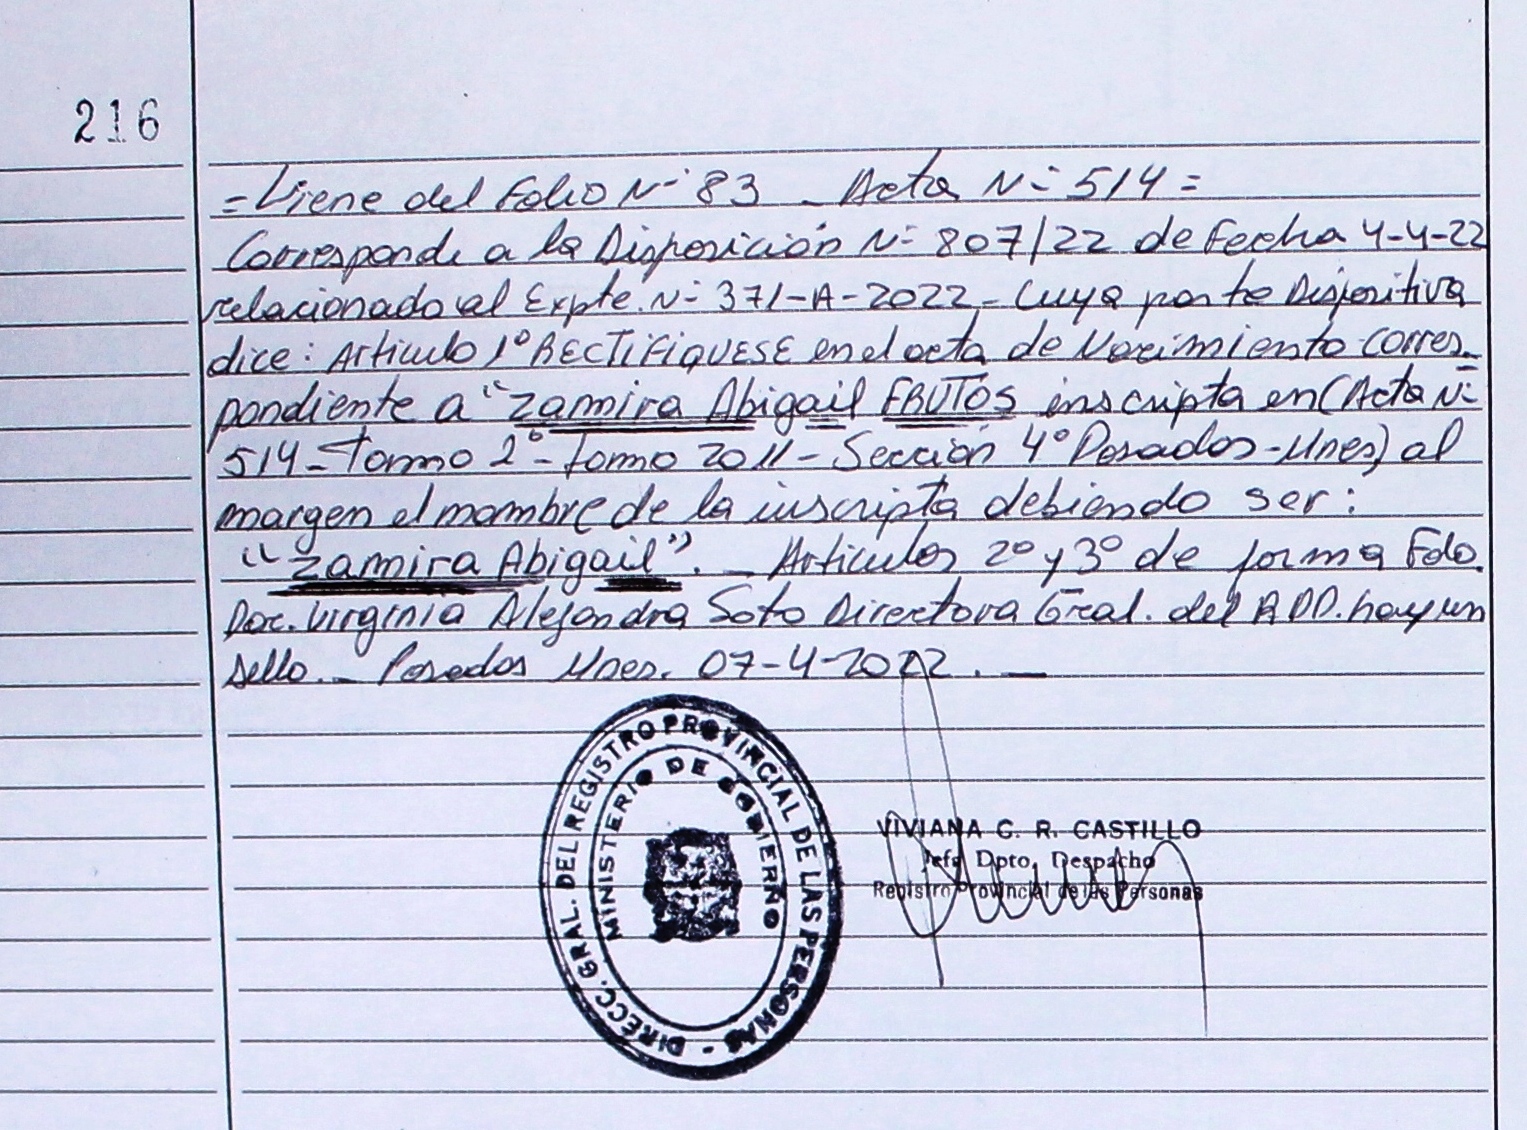 216
= Viene del Folio Nº 83 _ Acta Nº 514 =
Corresponde a la Disposición Nº 807/22 de Fecha 4-4-22
relacionado al Expte. Nº 371-A-2022 - Cuya parte Dispositiva
dice: Articulo 1º RECTIFIQUESE en el acta de Nacimiento corres-
pondiente a "Zamira Abigail FRUTOS inscripta en (Acta Nº
514 - Tomo 2º - Tomo 2011 - Sección 4º Posadas - Mnes) al
margen el nombre de la inscripta debiendo ser:
"Zamira Abigail". _ Articulos 2º y 3º de forma Fdo.
Dra. Virginia Alejandra Soto Directora Gral. del hay un
sello. _ Posadas Mnes. 07-4-2022. _
DIRECC. GRAL. DEL REGISTRO PROVINCIAL DE LAS PERSONAS -
MINISTERIO DE GOBIERNO
VIVIANA C. R. CASTILLO
Jefa Dpto. Despacho
Registro Provincial de las Personas